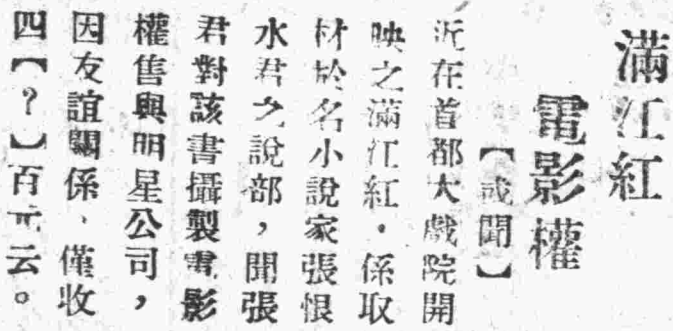 滿江紅
電影權
【或聞】
近在首都大戲院開
映之滿江紅，係取
材於名小說家張恨
水君之說部，聞張
君對該書攝製電影
權售與明星公司，
因友誼關係、僅收
四【？】百元云。